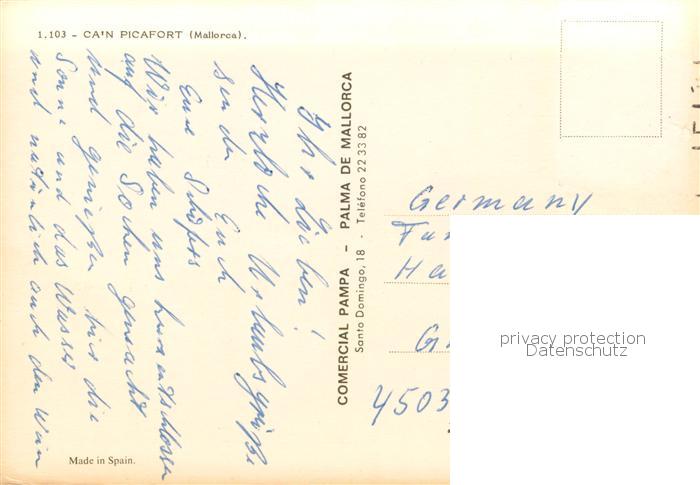 1.103 - CA'N PICAFORT (Mallorca).
Ihr Lieben!
Herzliche Urlaubsgrüße
senden Euch
Eure Schäfers
Wir haben uns kurzentschlossen
auf die Socken gemacht
und genießen hier die
Sonne und das Wasser
und natürlich auch den Wein
Made in Spain.
COMERCIAL PAMPA - PALMA DE MALLORCA
Santo Domingo, 18 - Teléfono 22 33 82
Germany
Fa
Ha
G
4503
privacy protection
Datenschutz